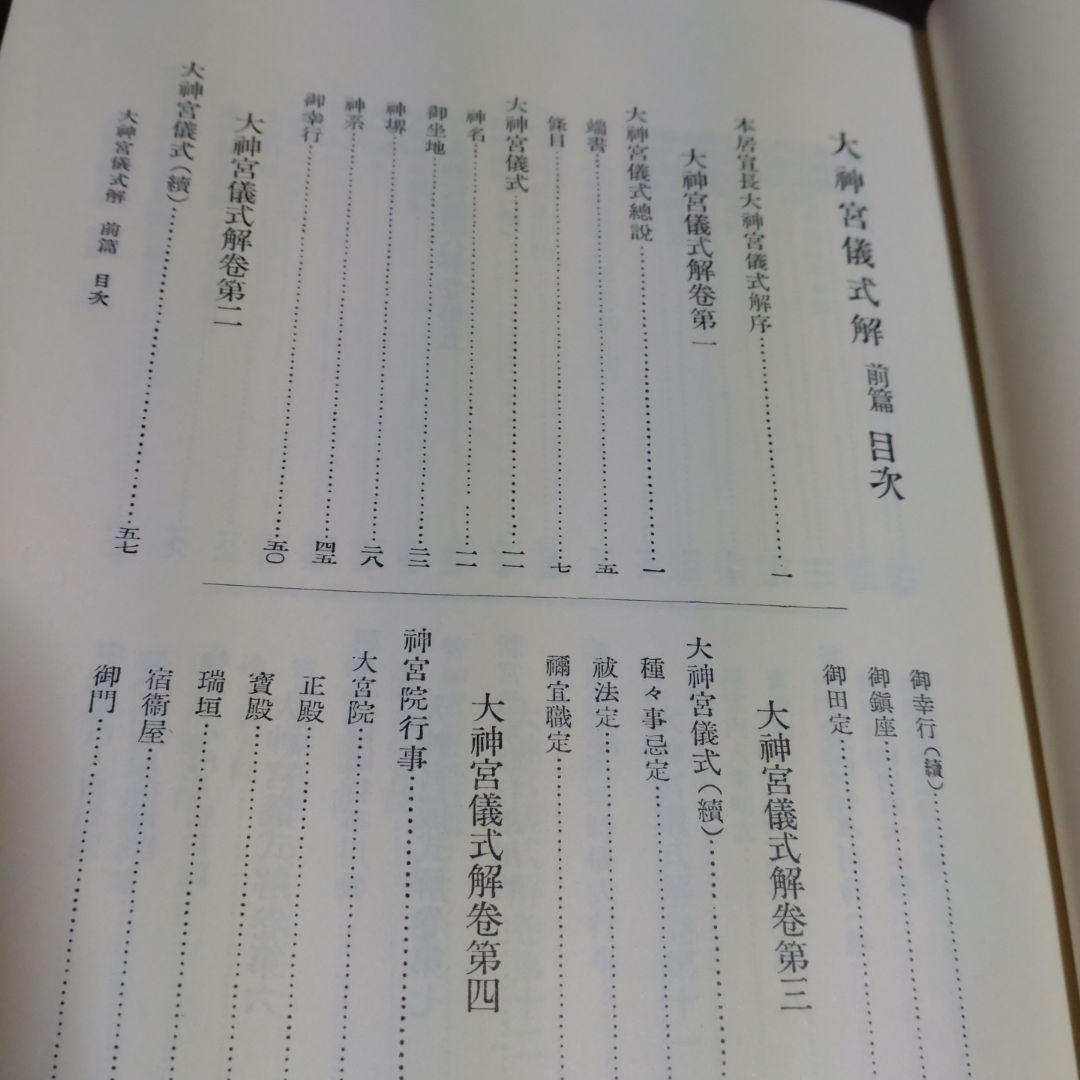 大神宮儀式解 前篇 目次
本居宣長大神宮儀式解序……一
大神宮儀式解卷第一
大神宮儀式總說……一
端書……五
條目……七
大神宮儀式……一一
神名……一一
御坐地……二三
神堺……二八
神系
御幸行……四五
大神宮儀式解卷第二……五〇
大神宮儀式(續)……五七
大神宮儀式解 前篇 目次
御幸行(續)……
御鎭座……
御田定……
大神宮儀式解卷第三
大神宮儀式(續)……
種々事忌定……
祓法定……
禰宜職定……
大神宮儀式解卷第四
神宮院行事……
大宮院……
正殿……
寶殿……
瑞垣……
宿衞屋……
御門……